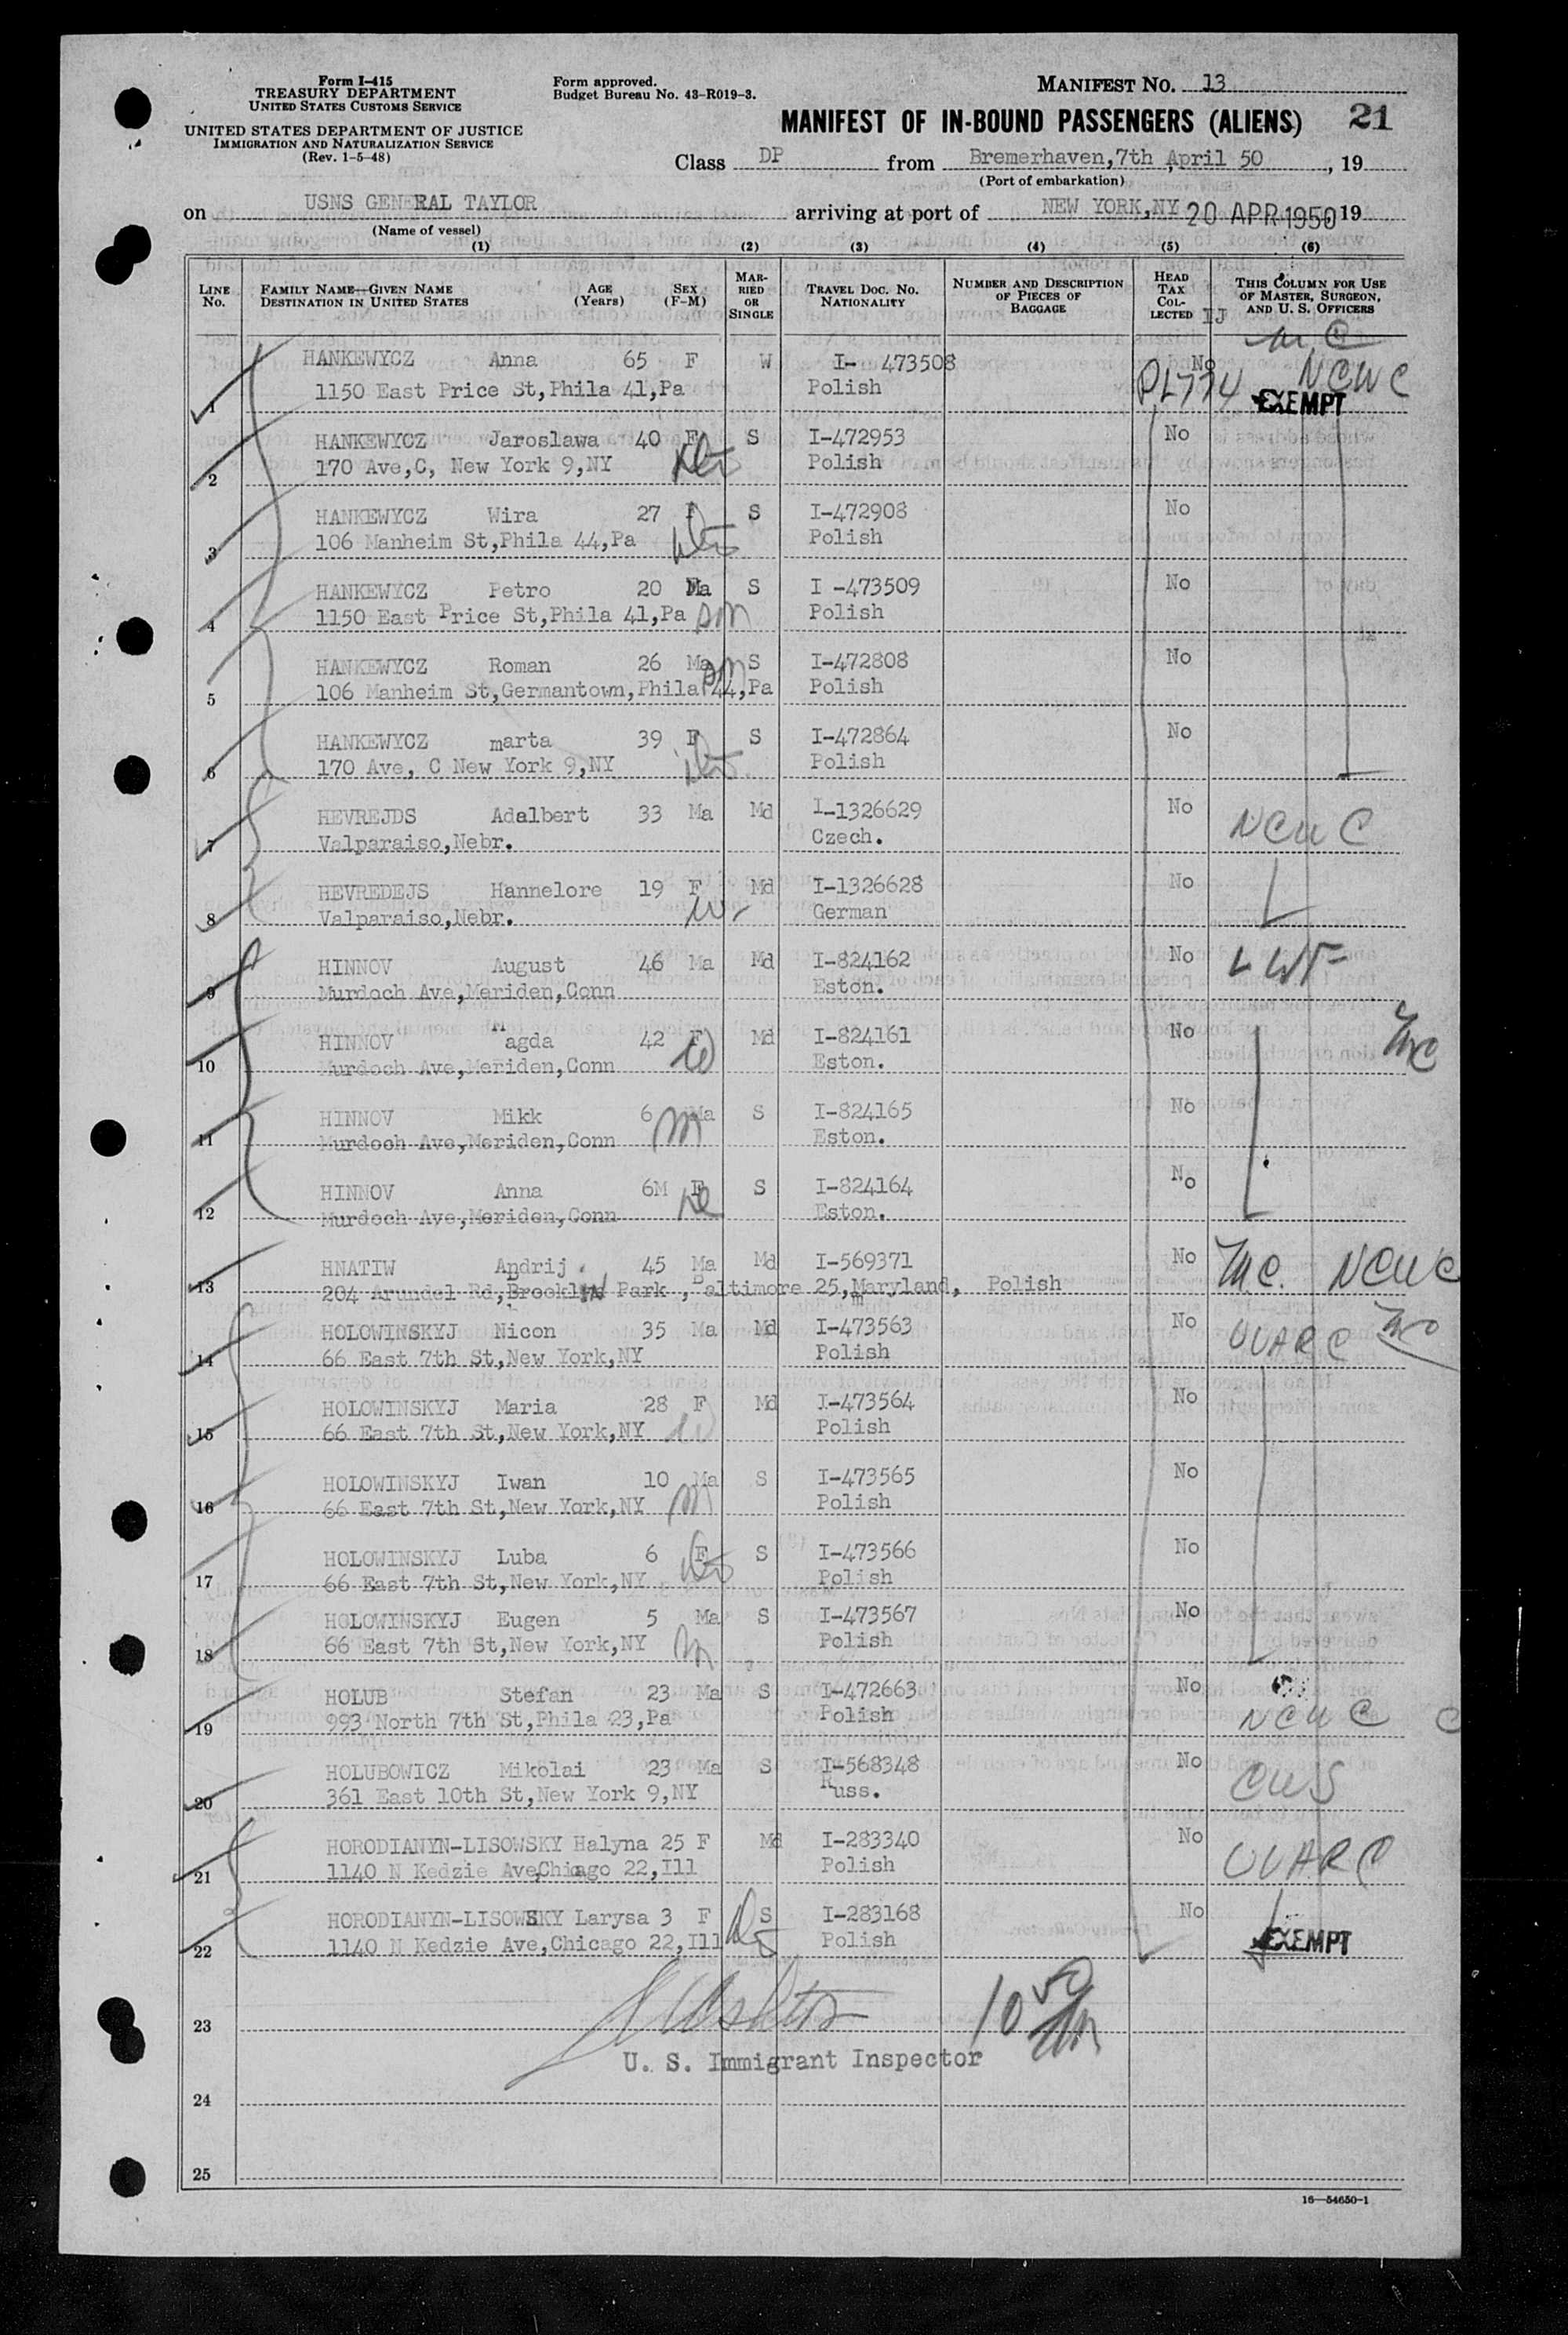 Form I-415
TREASURY DEPARTMENT
UNITED STATES CUSTOMS SERVICE
UNITED STATES DEPARTMENT OF JUSTICE
IMMIGRATION AND NATURALIZATION SERVICE
(Rev. 1-5-48)
Form approved.
Budget Bureau No. 43-R019-3.
MANIFEST NO. 13
MANIFEST OF IN-BOUND PASSENGERS (ALIENS) 21
Class DP from Bremerhaven,7th April 50, 19
(Port of embarkation)
on USNS GENERAL TAYLOR arriving at port of NEW YORK,NY 20 APR 1950, 19
(Name of vessel)
(1) (2) (3) (4) (5) (6)
LINE No. FAMILY NAME—GIVEN NAME DESTINATION IN UNITED STATES AGE (Years) SEX (F-M) MARRIED OR SINGLE TRAVEL DOC. NO. NATIONALITY NUMBER AND DESCRIPTION OF PIECES OF BAGGAGE HEAD TAX COLLECTED THIS COLUMN FOR USE OF MASTER, SURGEON, AND U. S. OFFICERS
HANKEWYCZ Anna 65 F W I- 473508 No NCWC
1 1150 East Price St,Phila 41,Pa Polish PL774 EXEMPT
HANKEWYCZ Jaroslawa 40 F S I-472953 No
2 170 Ave,C, New York 9,NY Polish
HANKEWYCZ Wira 27 F S I-472908 No
3 106 Manheim St,Phila 44,Pa Polish
HANKEWYCZ Petro 20 Ma S I -473509 No
4 1150 East Price St,Phila 41,Pa Polish
HANKEWYCZ Roman 26 Ma S I-472808 No
5 106 Manheim St,Germantown,Phila 44,Pa Polish
HANKEWYCZ marta 39 F S I-472864 No
6 170 Ave, C New York 9,NY Polish
HEVREJDS Adalbert 33 Ma Md I-1326629 No NCWC
7 Valparaiso,Nebr. Czech.
HEVREDEJS Hannelore 19 F Md I-1326628 No
8 Valparaiso,Nebr. German
HINNOV August 46 Ma Md I-824162 No LWF
9 Murdoch Ave,Meriden,Conn Eston.
HINNOV Magda 42 F Md I-824161 No
10 Murdoch Ave,Meriden,Conn Eston.
HINNOV Mikk 6 Ma S I-824165 No
11 Murdoch Ave,Meriden,Conn Eston.
HINNOV Anna 6M F S I-824164 No
12 Murdoch Ave,Meriden,Conn Eston.
HNATIW Andrij 45 Ma Md I-569371 No M.C. NCWC
13 204 Arundel Rd,Brooklyn Park ,Baltimore 25,Maryland, Polish
HOLOWINSKYJ Nicon 35 Ma Md I-473563 No UUARC
14 66 East 7th St,New York,NY Polish
HOLOWINSKYJ Maria 28 F Md I-473564 No
15 66 East 7th St,New York,NY Polish
HOLOWINSKYJ Iwan 10 Ma S I-473565 No
16 66 East 7th St,New York,NY Polish
HOLOWINSKYJ Luba 6 F S I-473566 No
17 66 East 7th St,New York,NY Polish
HOLOWINSKYJ Eugen 5 Ma S I-473567 No
18 66 East 7th St,New York,NY Polish
HOLUB Stefan 23 Ma S I-472663 No
19 993 North 7th St,Phila 23,Pa Polish NCWC
HOLUBOWICZ Mikolai 23 Ma S I-568348 No CWS
20 361 East 10th St,New York 9,NY Russ.
HORODIANYN-LISOWSKY Halyna 25 F Md I-283340 No UUARC
21 1140 N Kedzie Ave,Chicago 22,Ill Polish
HORODIANYN-LISOWSKY Larysa 3 F S I-283168 No
22 1140 N Kedzie Ave,Chicago 22,Ill Polish EXEMPT
23 10 50
U. S. Immigrant Inspector
24
25
16—54650-1